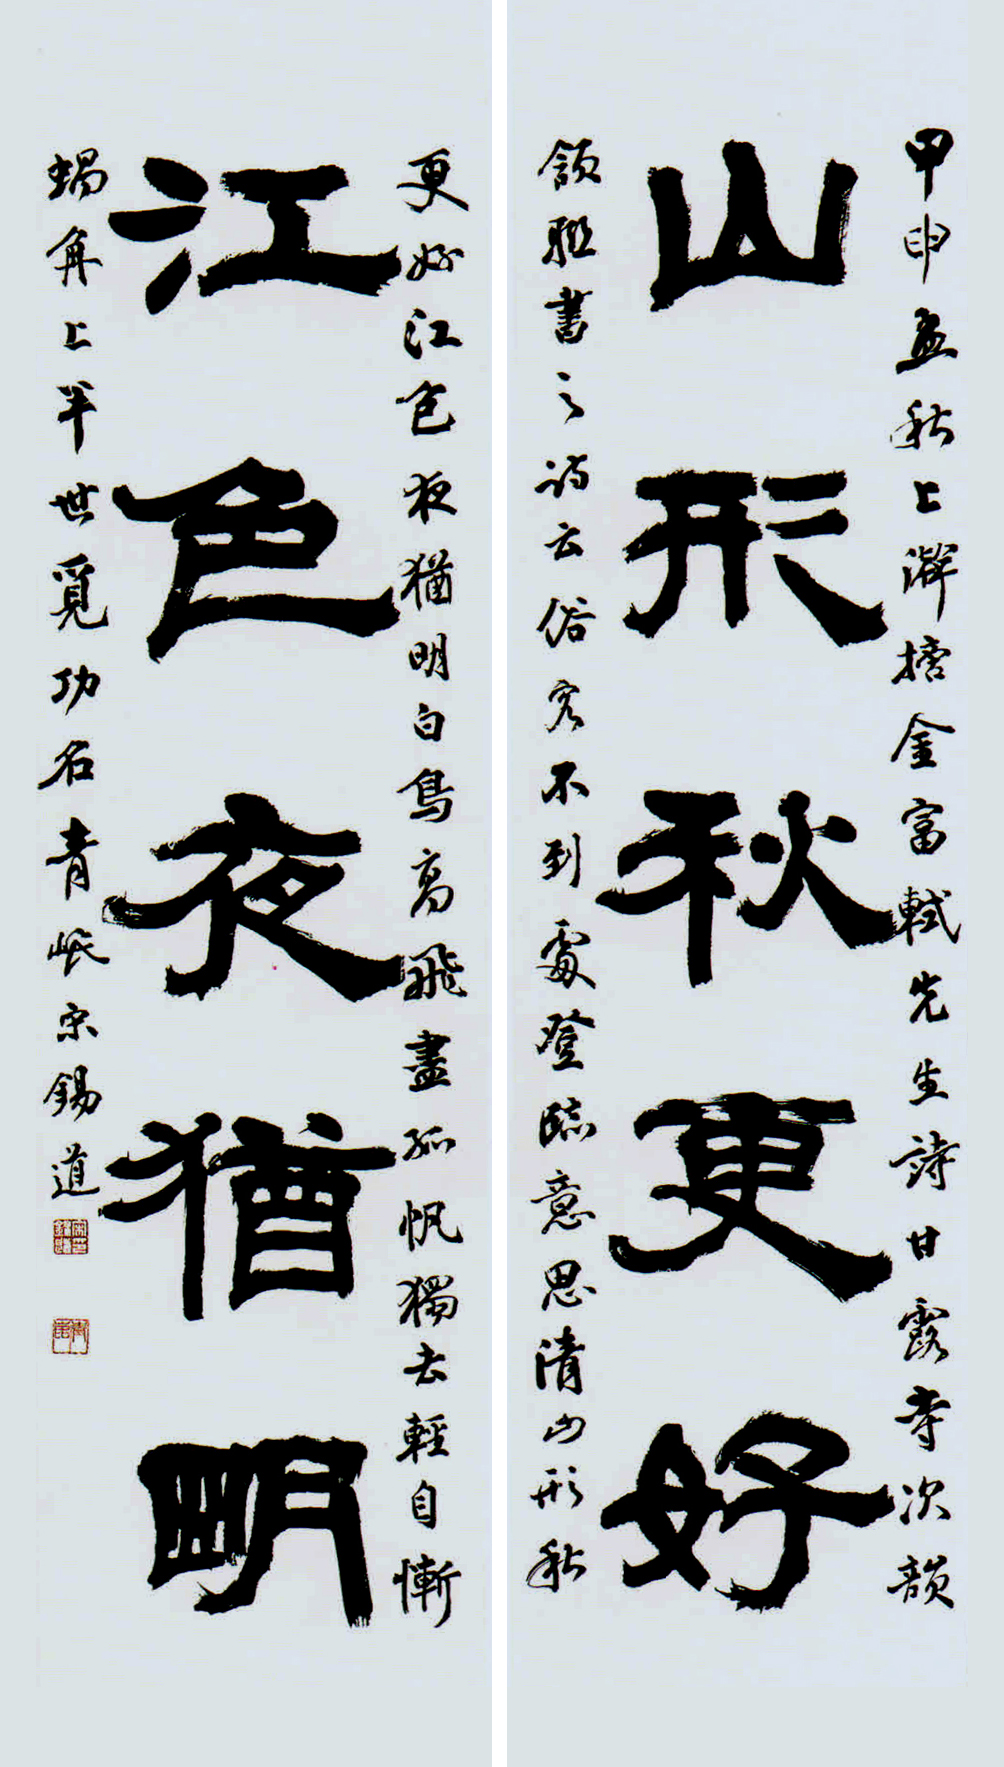 甲申孟秋上澣金富軾先生詩甘露寺次韻
山形秋更好
頷聯書之詩云俗客不到處登臨意思清山形秋
更好江色夜猶明白鳥高飛盡孤帆獨去輕自慚
江色夜猶明
蝸角上半世覓功名青岷宋錫道